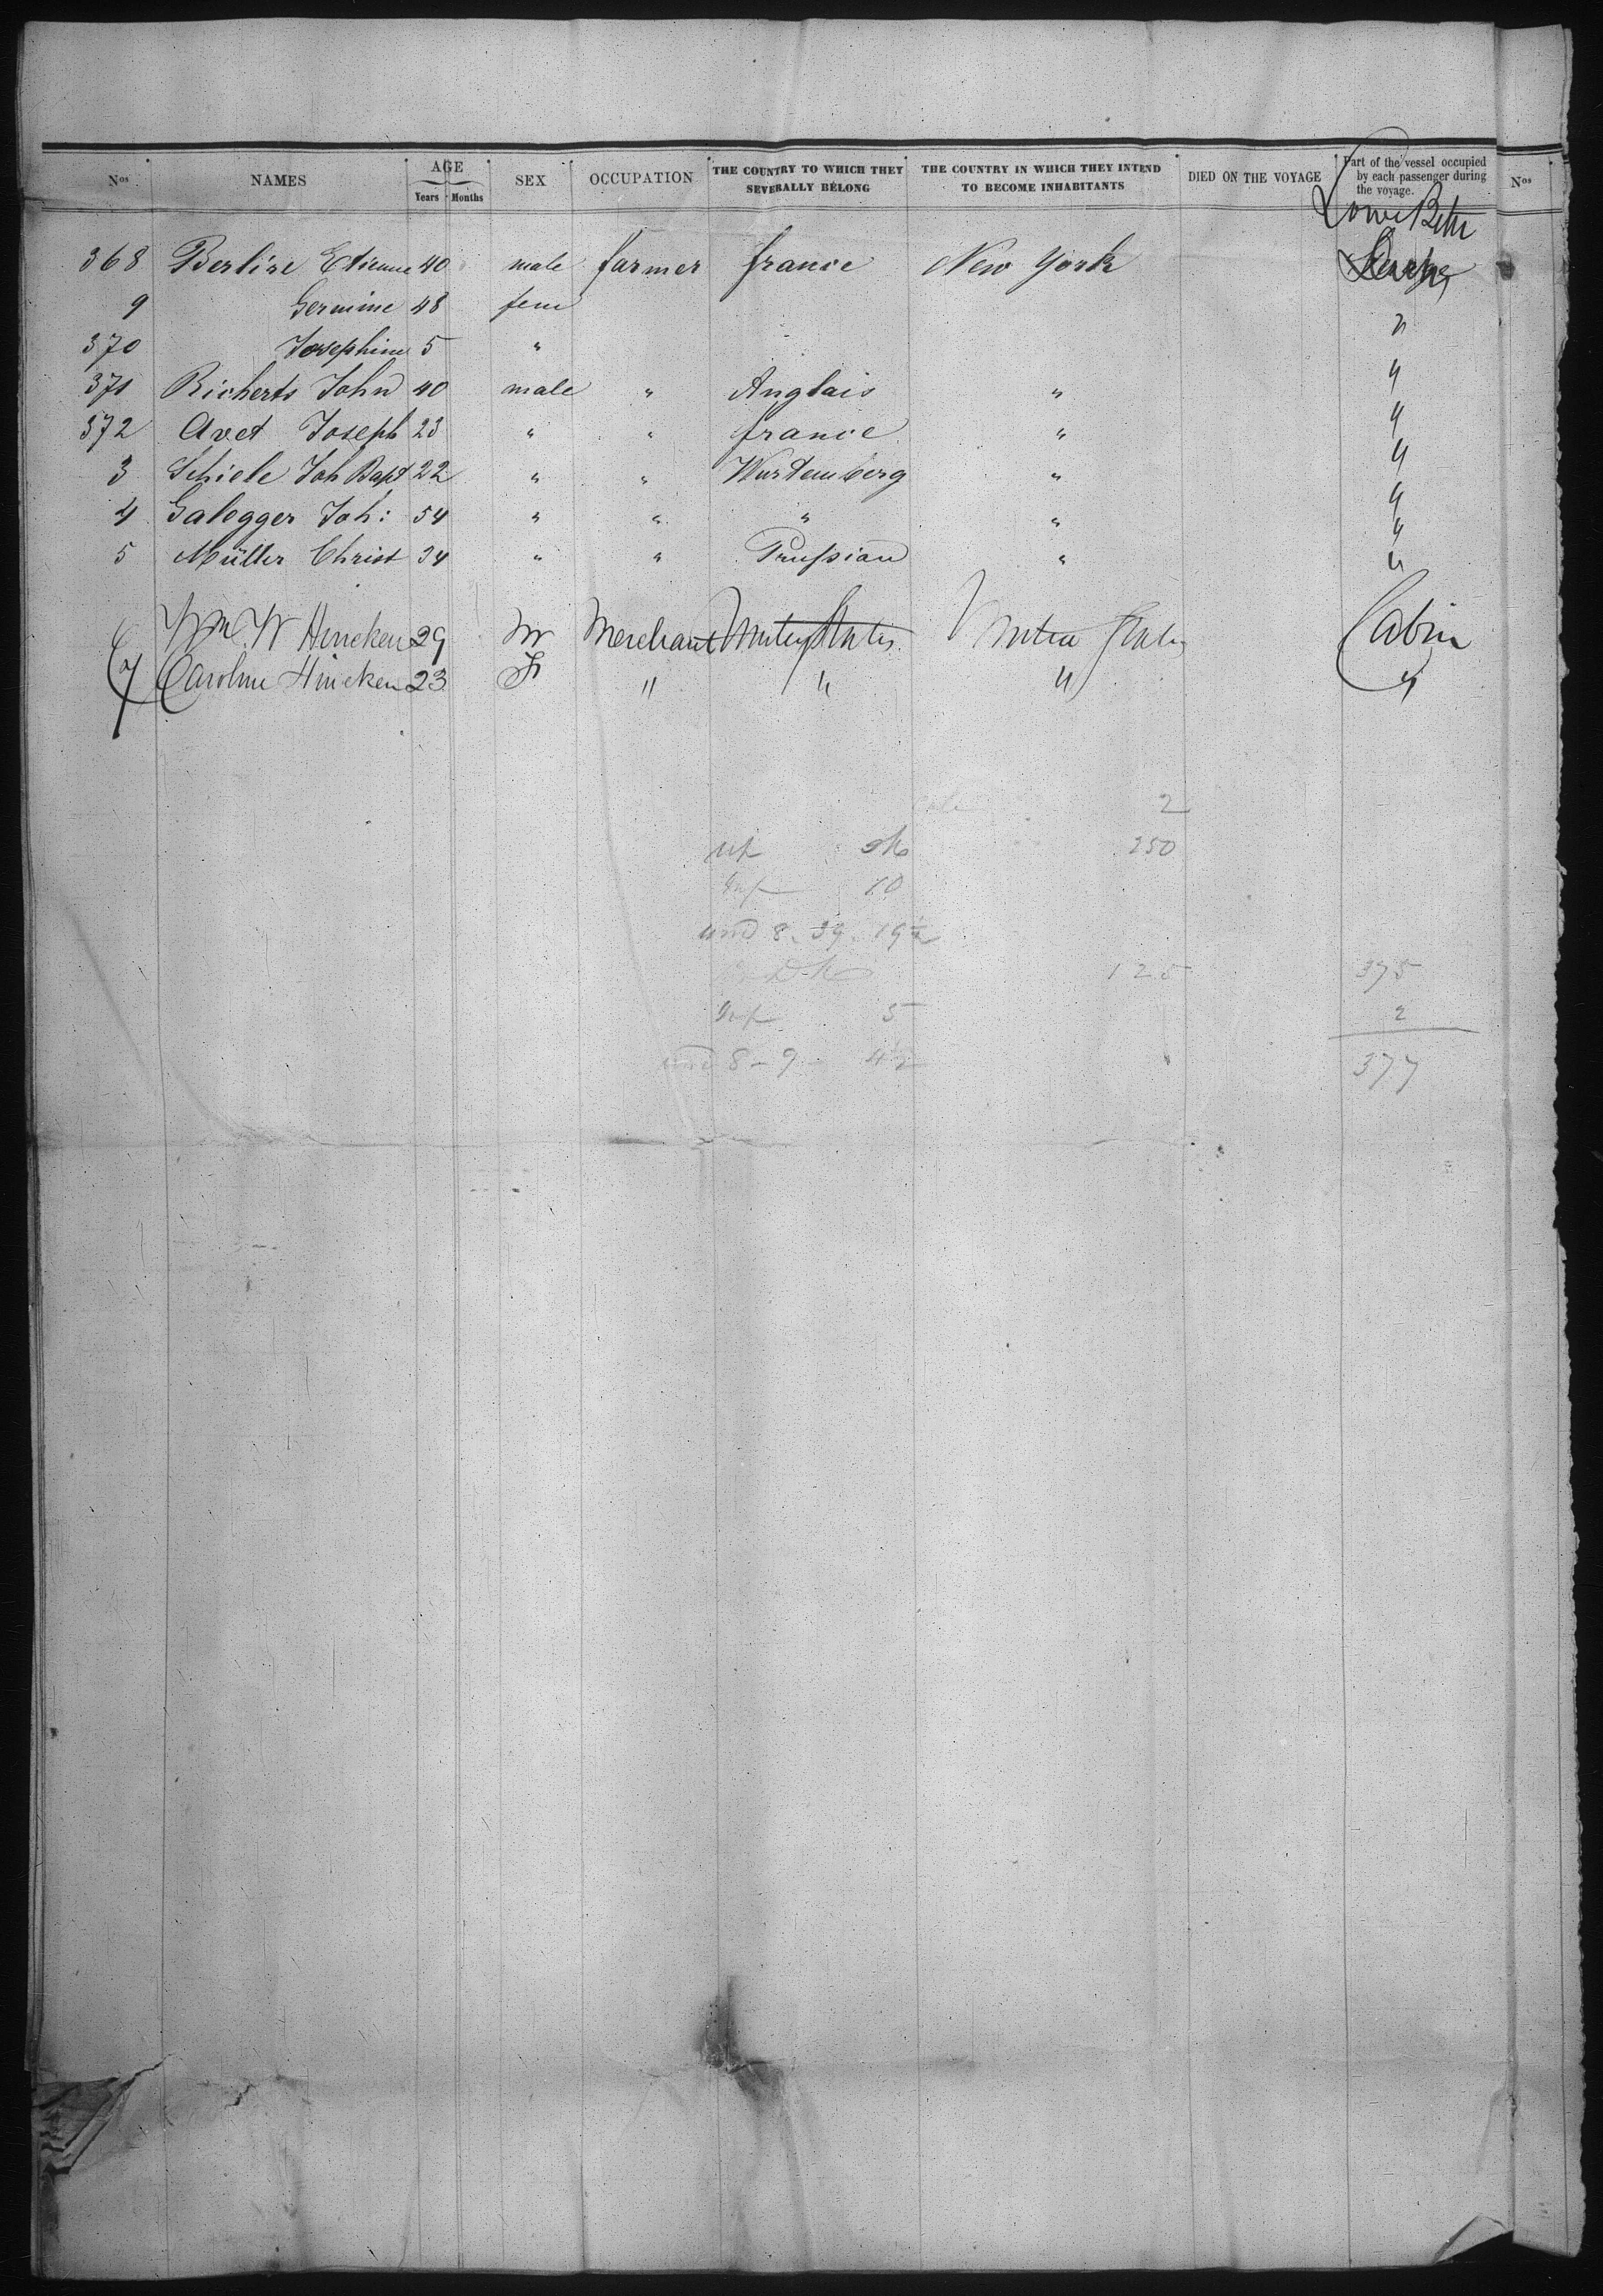 Nos NAMES AGE Years Months SEX OCCUPATION THE COUNTRY TO WHICH THEY SEVERALLY BELONG THE COUNTRY IN WHICH THEY INTEND TO BECOME INHABITANTS DIED ON THE VOYAGE Part of the vessel occupied by each passenger during the voyage. Nos
368 Berlire Etienne 40 male farmer france New York
9 Germine 48 fem "
370 Josephine 5 " "
371 Richerts John 40 male " Anglais " "
372 Avet Joseph 23 " " france " "
3 Schiele Joh Bapt 22 " " Wurtemberg " "
4 Galegger Joh: 54 " " " " "
5 Müller Christ 34 " " Prussian " "
6 Wm. W Hincken 29 M Merchant United States United States Cabin
7 Caroline Hincken 23 F " " " "
2
up 250
Inf 10
und 8. 39. 19½
125 375
Inf 5 2
und 8-9 4½ 377